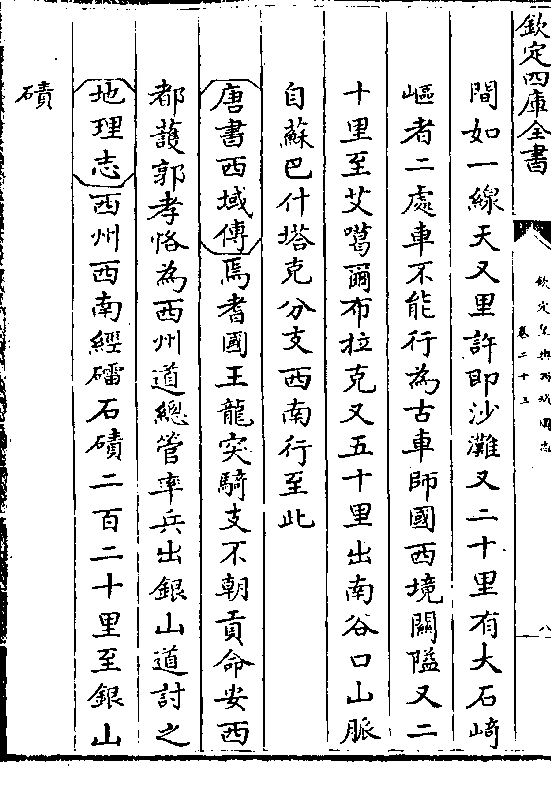 欽定四庫全書
欽定皇輿西域圖志
卷二十三
八
間如一線天又里許即沙灘又二十里有大石﨑
嶇者二處車不能行為古車師國西境關隘又二
十里至艾噶爾布拉克又五十里出南谷口山脈
自蘇巴什塔克分支西南行至此
唐書西域傳焉耆國王龍突騎支不朝貢命安西
都䕶郭孝恪為西州道總管率兵出銀山道討之
地理志西州西南經礌石磧二百二十里至銀山
磧